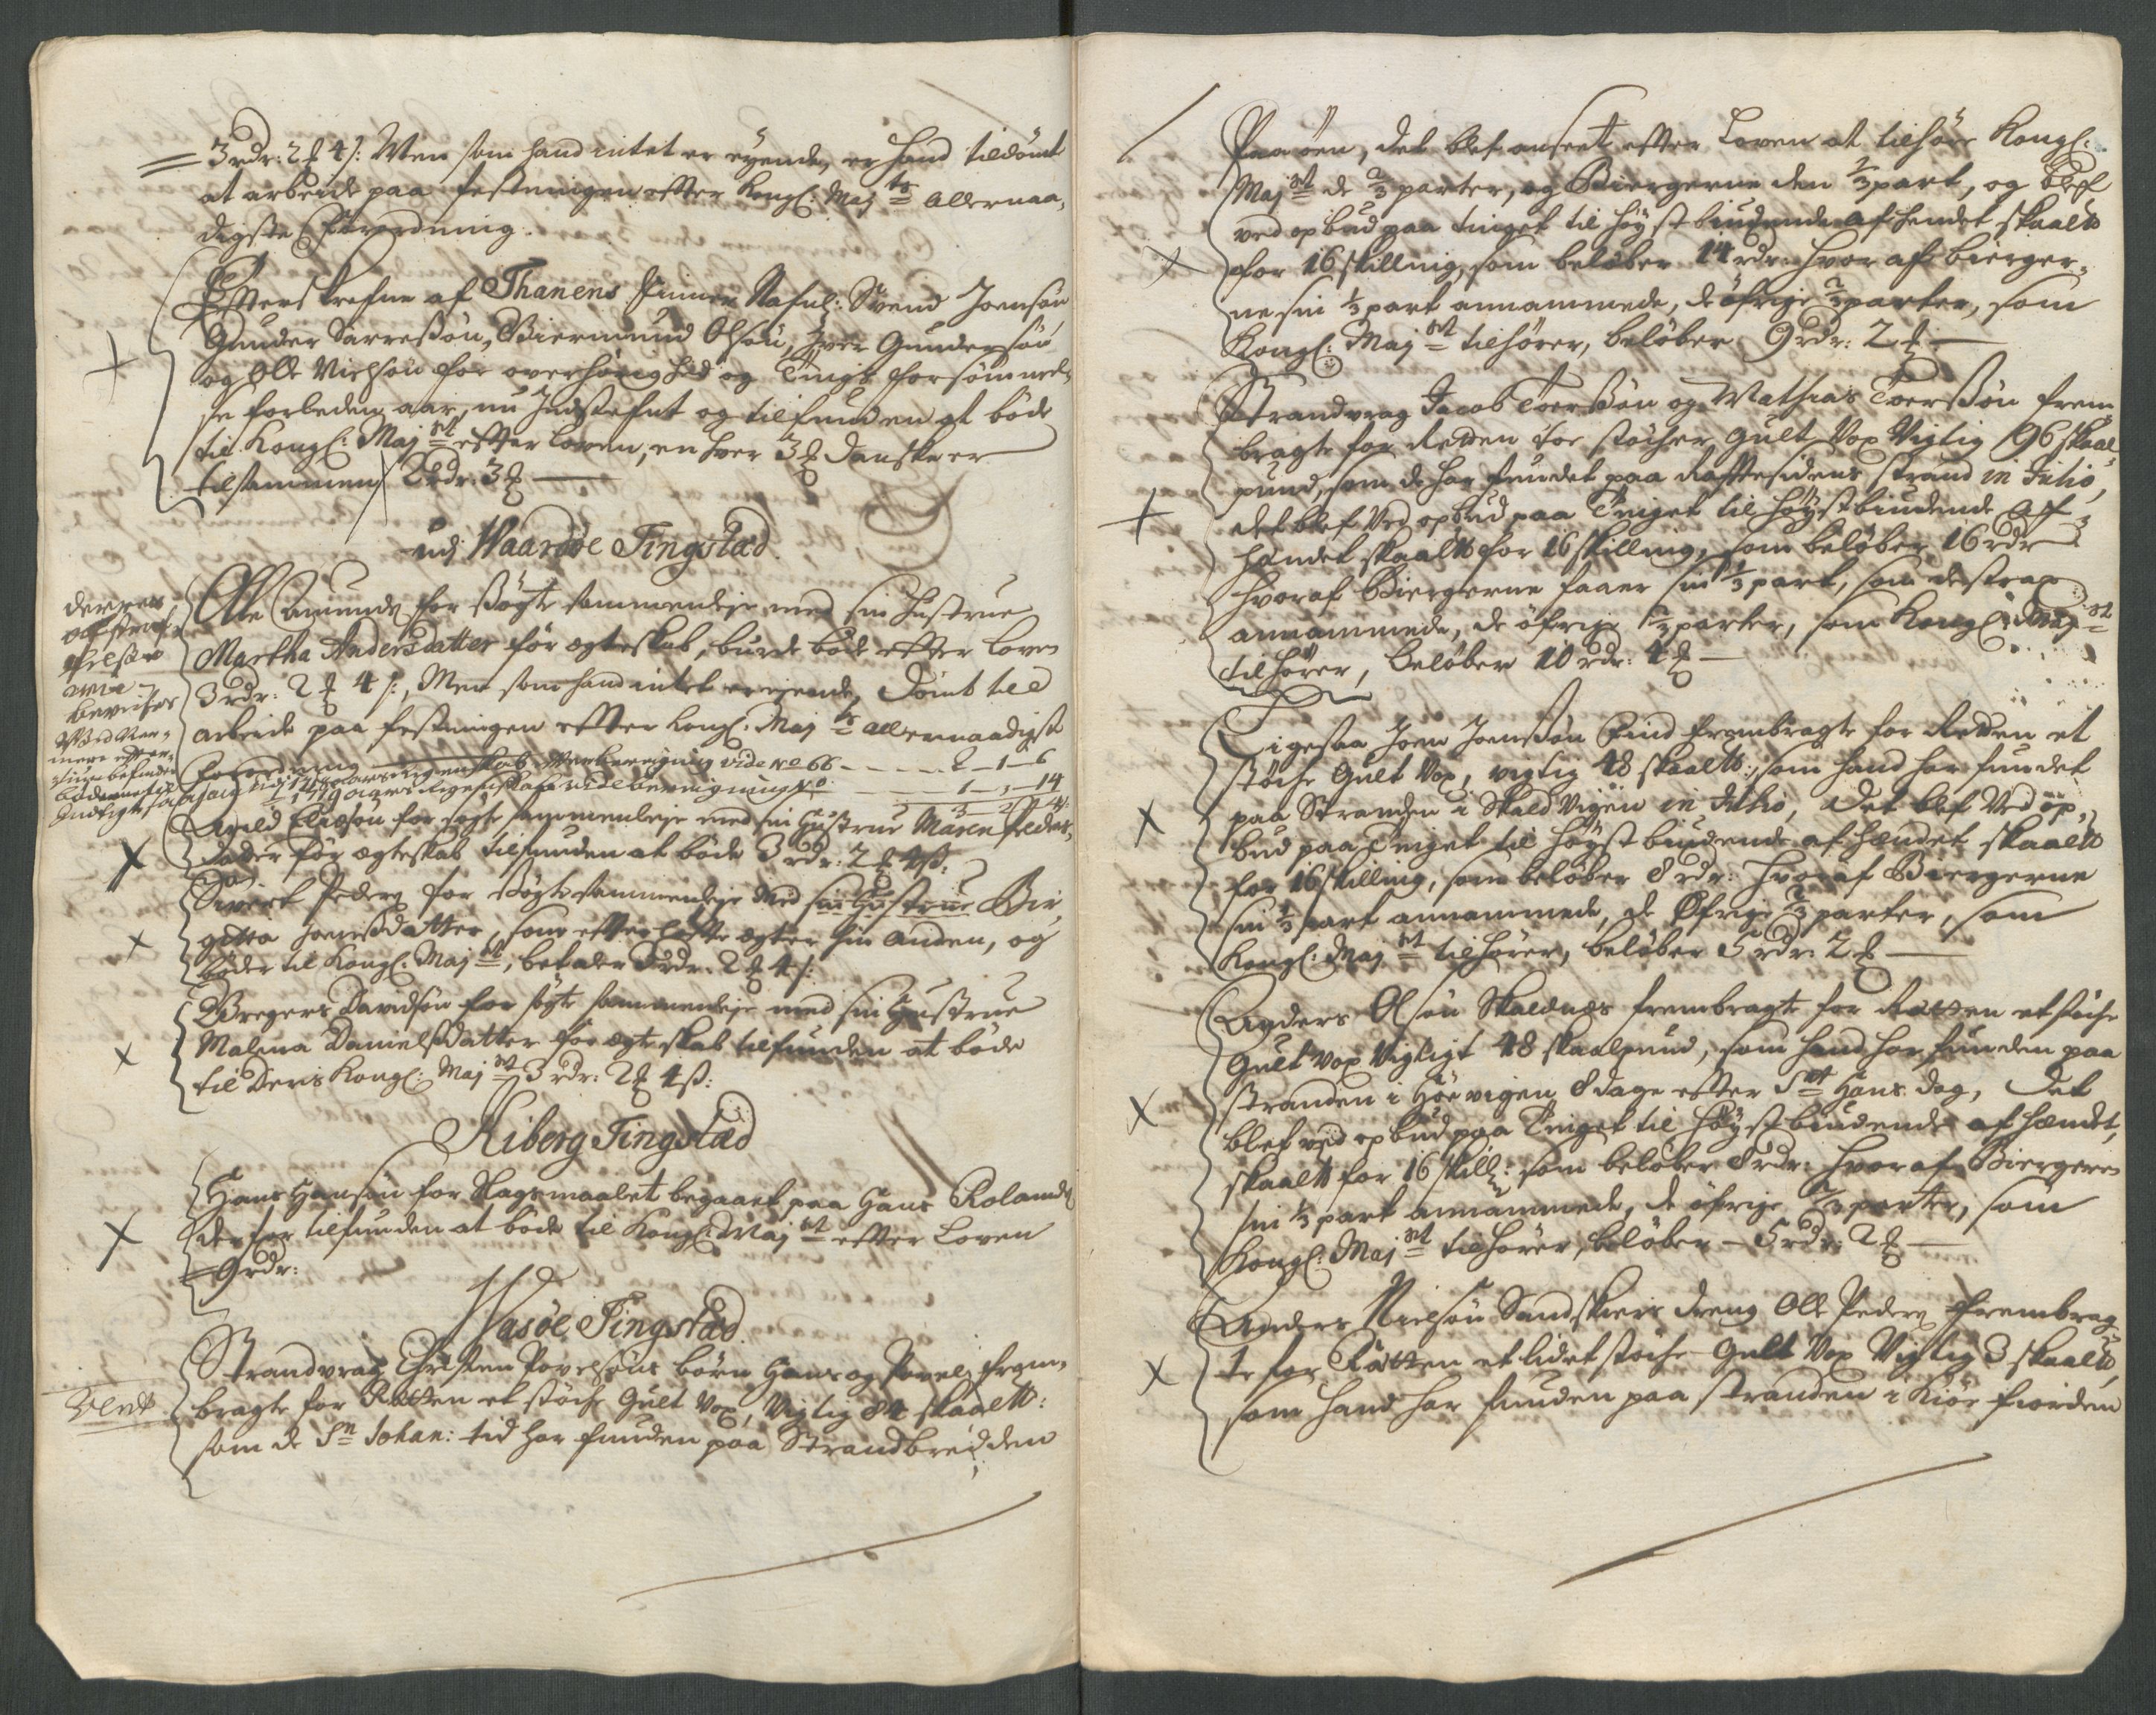 3 rdr: 2 ꝸ 4 s: Men som hand intet er eyende, er hand tildömt
at arbeide paa festningen efter Kongl: Maj ts Allernaa,
digste Forordning.
Efterskrefne af Thanens Finner Nafnl: Svend Joensön
Gunder Sarresön, Biermund Olsön, Iver Gundersön
og Olle Nielsön for overhörighed og Tings forsömmel,
se forleden aar, nu Indstefnt og tilfunden at böde
til Kongl: Maj st efter Loven, en hver 3 ꝸ danske er
tilsammen 2 rdr: 3 ꝸ
udj Waardöe Tingsted.
Olle Amunds for Bögt sammenleje med sin Hustrue
Martha Andersdatter för ægteskab, burde böde efter Loven
3 rdr: 2 ꝸ 4 s:, Men som hand intet er eyende, Dömt til
arbeide paa festningen efter Kongl: Maj ts allernaadigste
Forordning
vide No 66 2 - 1 - 6
1 - " - 14
Elieson for sögte sammenleje med sin Hustrue Maren Peders,
datter för ægteskab tilfunden at böde 3 rdr: 2 ꝸ 4 ß:
Sivert Peders for Bögt sammenleje med sin Hustrue Bir
gitta Joensdatter, som efter ægter sin anden, og
böder til Kongl: Maj st, betaler 3 rdr: 2 ꝸ 4 s:
Gregers Davidsön for sögte sammenleje med sin Hustrue
Malena Danielsdatter for ægteskab tilfunden at böde
til Deris Kongl: Maj st 3 rdr: 2 ꝸ 4 ß:
Kiberg Tingsted
Hans Hansön for Slagsmaalet begaaet paa Hans Rolands
derfor tilfunden at böde til Kongl: Maj st efter Loven
9 rdr:
Wasöe Tingsted.
Strandvrag Christen Povelsöns börn Hans og Povel, frem,
bragte for Retten et störche Gult Vox, Vigtig 84 skaal℔:
som de Sn Johan: tid har funden paa Strandbredden
Paa öen, det blef anseet efter Loven at tilhöre Kongl:
Maj st de 2/3 parter, og Biergerne den 1/3 part, og blef
ved opbud paa tinget til höystbiudende afhendet skaal℔
for 16 skilling, som belöber 14 rdr: hvoraf Bierger,
ne sin 1/3 part annammede, de öfrige 2/3 parter, som
Kongl: Maj st tilhörer, belöber 9 rdr: 2 ꝸ
Strandvrag Jacob Toersön og Mathias Toersön frem,
bragte for Retten tre stöcher gult Vox Vigtig 96 skaal,
pund, som de har fundet paa strand in Julio,
det blef Ved opbud paa Tinget til höystbiudende Af,
hændet skaal℔ for 16 skilling, som belöber 16 rdr
hvoraf Biergerne faaer sin 1/3 part, som de strax
annammede, de öfrige 2/3 parter, som Kongl: Maj st
tilhörer, belöber 10 rdr: 4 ꝸ
Ligesaa Joen Joensön Find frembragte for Retten et
störche Gult Vox, vigtig 48 skaal℔:, som hand har fundet
paa Stranden i Skald Vigen in Julio, det blef Ved op,
bud paa Tinget til höystbiudende afhændet skaal℔
for 16 skilling, som belöber 8 rdr: hvoraf Biergerne
sin 1/3 part annammede, de Öfrige 2/3 parter, som
Kongl: Maj st tilhörer, belöber 5 rdr: 2 ꝸ
Anders Olsön Skaldnæs frembragte for Retten et störche
Gult Vox Vigtigt 48 skaalpund, som hand har funden paa
stranden i Höevigen 8 dage efter St Hans dag, Det
blef ved opbud paa Tinget til höystbiudende afhændet,
skaal℔ for 16 skill: som belöber 8 rdr: hvoraf Biergerne
sin 1/3 part annammede, de öfrige 2/3 parter, som
Kongl: Maj st tilhörer, belöber 5 rdr: 2 ꝸ
Anders Nielsön Sandskiers dreng Olle Peders frembrag,
te for Retten et lidet störche Gult Vox Vigtig 3 skaal℔,
som hand har funden paa stranden i Kiöefiorden